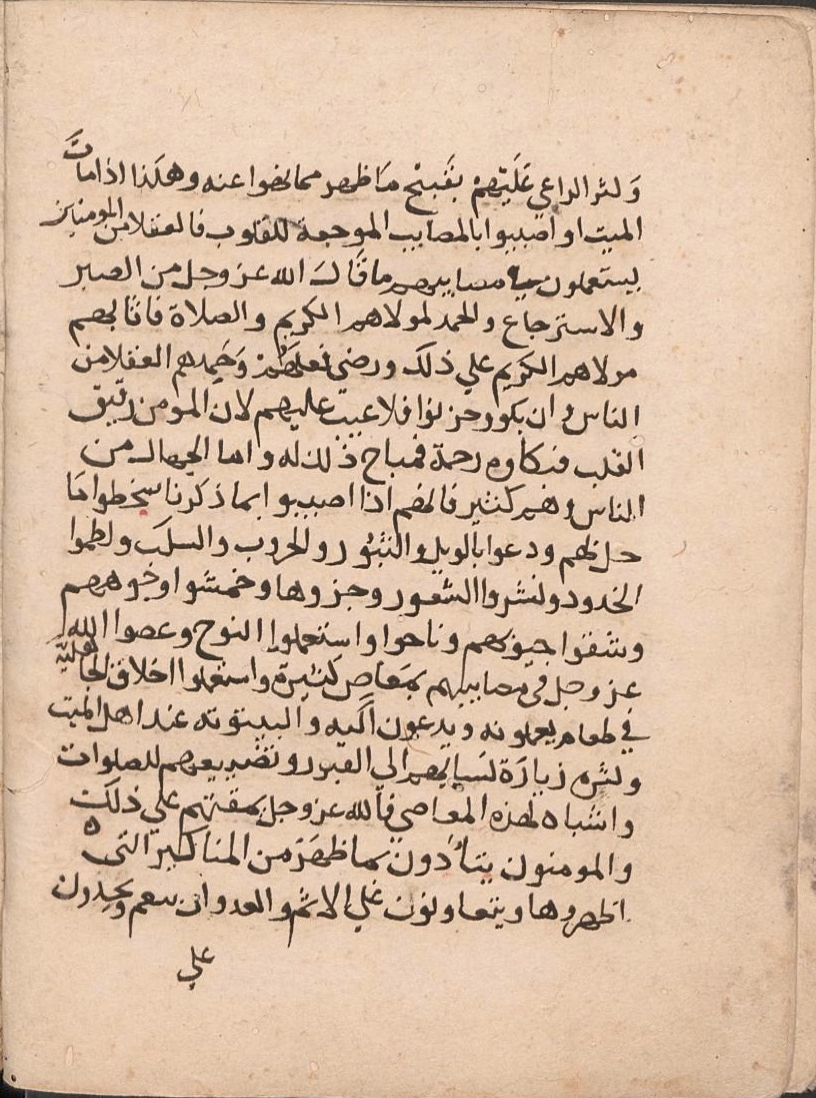 وكثر الداعي عليهم بقبيح ما ظهر مما نهوا عنه وهكذا اذا مات
الميت او اصيبوا بالمصايب الموجعة للقلوب فالعقلا من المومنين
يستعملون في مصايبهم ما قال الله عز وجل من الصبر
والاسترجاع والحمد لمولاهم الكريم والصلاة فاثابهم
مولاهم الكريم علي ذلك ورضي فعلهم وحمدهم العقلا من
الناس وان بكو وحزنوا فلا عيب عليهم لان المومن رقيق
القلب فبكاوه رحمة فمباح ذلك له واما الجهال من
الناس وهم كثير فانهم اذا اصيبوا بما ذكرنا سخطوا ما
حل بهم ودعوا بالويل والثبور والحروب والسلب ولطموا
الخدود ونشروا الشعور وجزوها وخمشوا وجوههم
وشقوا جيوبهم وناحوا واستعملوا النوح وعصوا الله
عز وجل في مصايبهم بمعاص كثيرة واستعملوا اخلاق الجاهلية
في طعام يعملونه ويدعون اليه والبيتوته عند اهل الميت
وكثره زيارة نسايهم الي القبور وتضييعهم للصلوات
واشباه لهذه المعاصي فالله عز وجل يمقتهم علي ذلك
والمومنون يتأدون بما ظهر من المناكير التي
اظهروها ويتعاونون علي الاثم والعدوان نعم ويجدون
علي